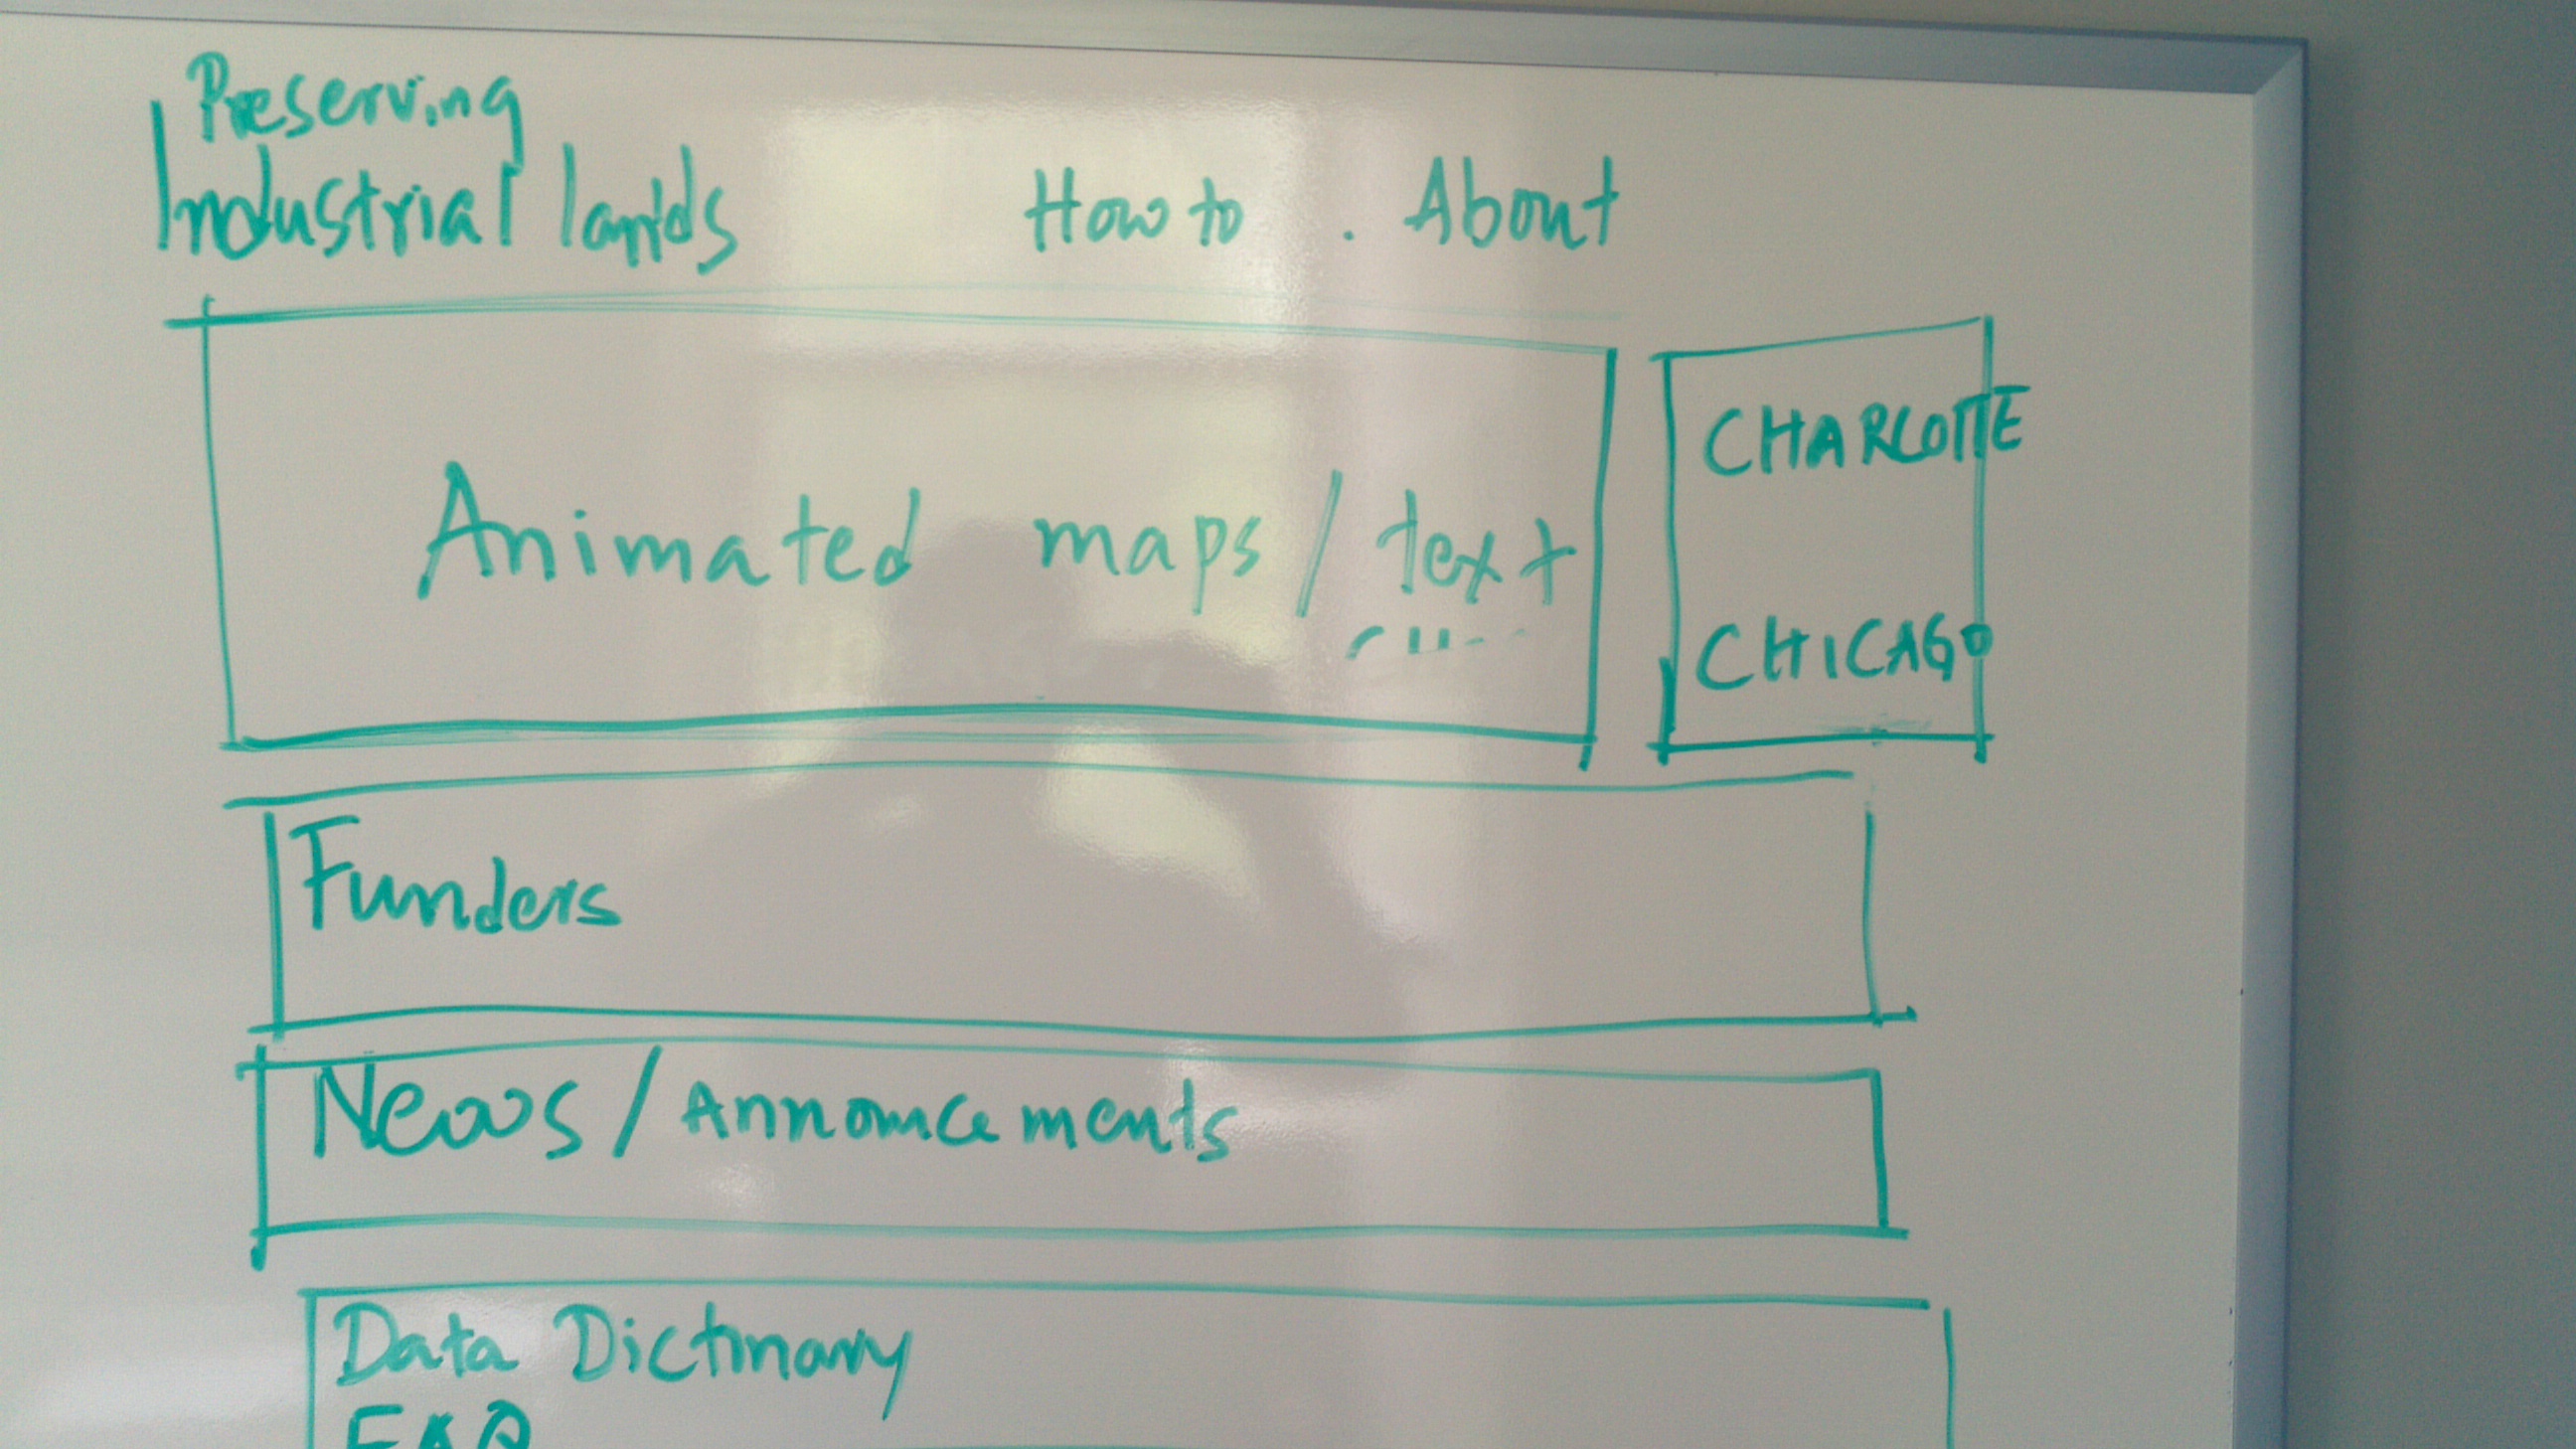 Preserving
Industrial lands
How to . About
Animated maps / text
CHARLOTTE
CHICAGO
Funders
News / Announcements
Data Dictionary
FAQ